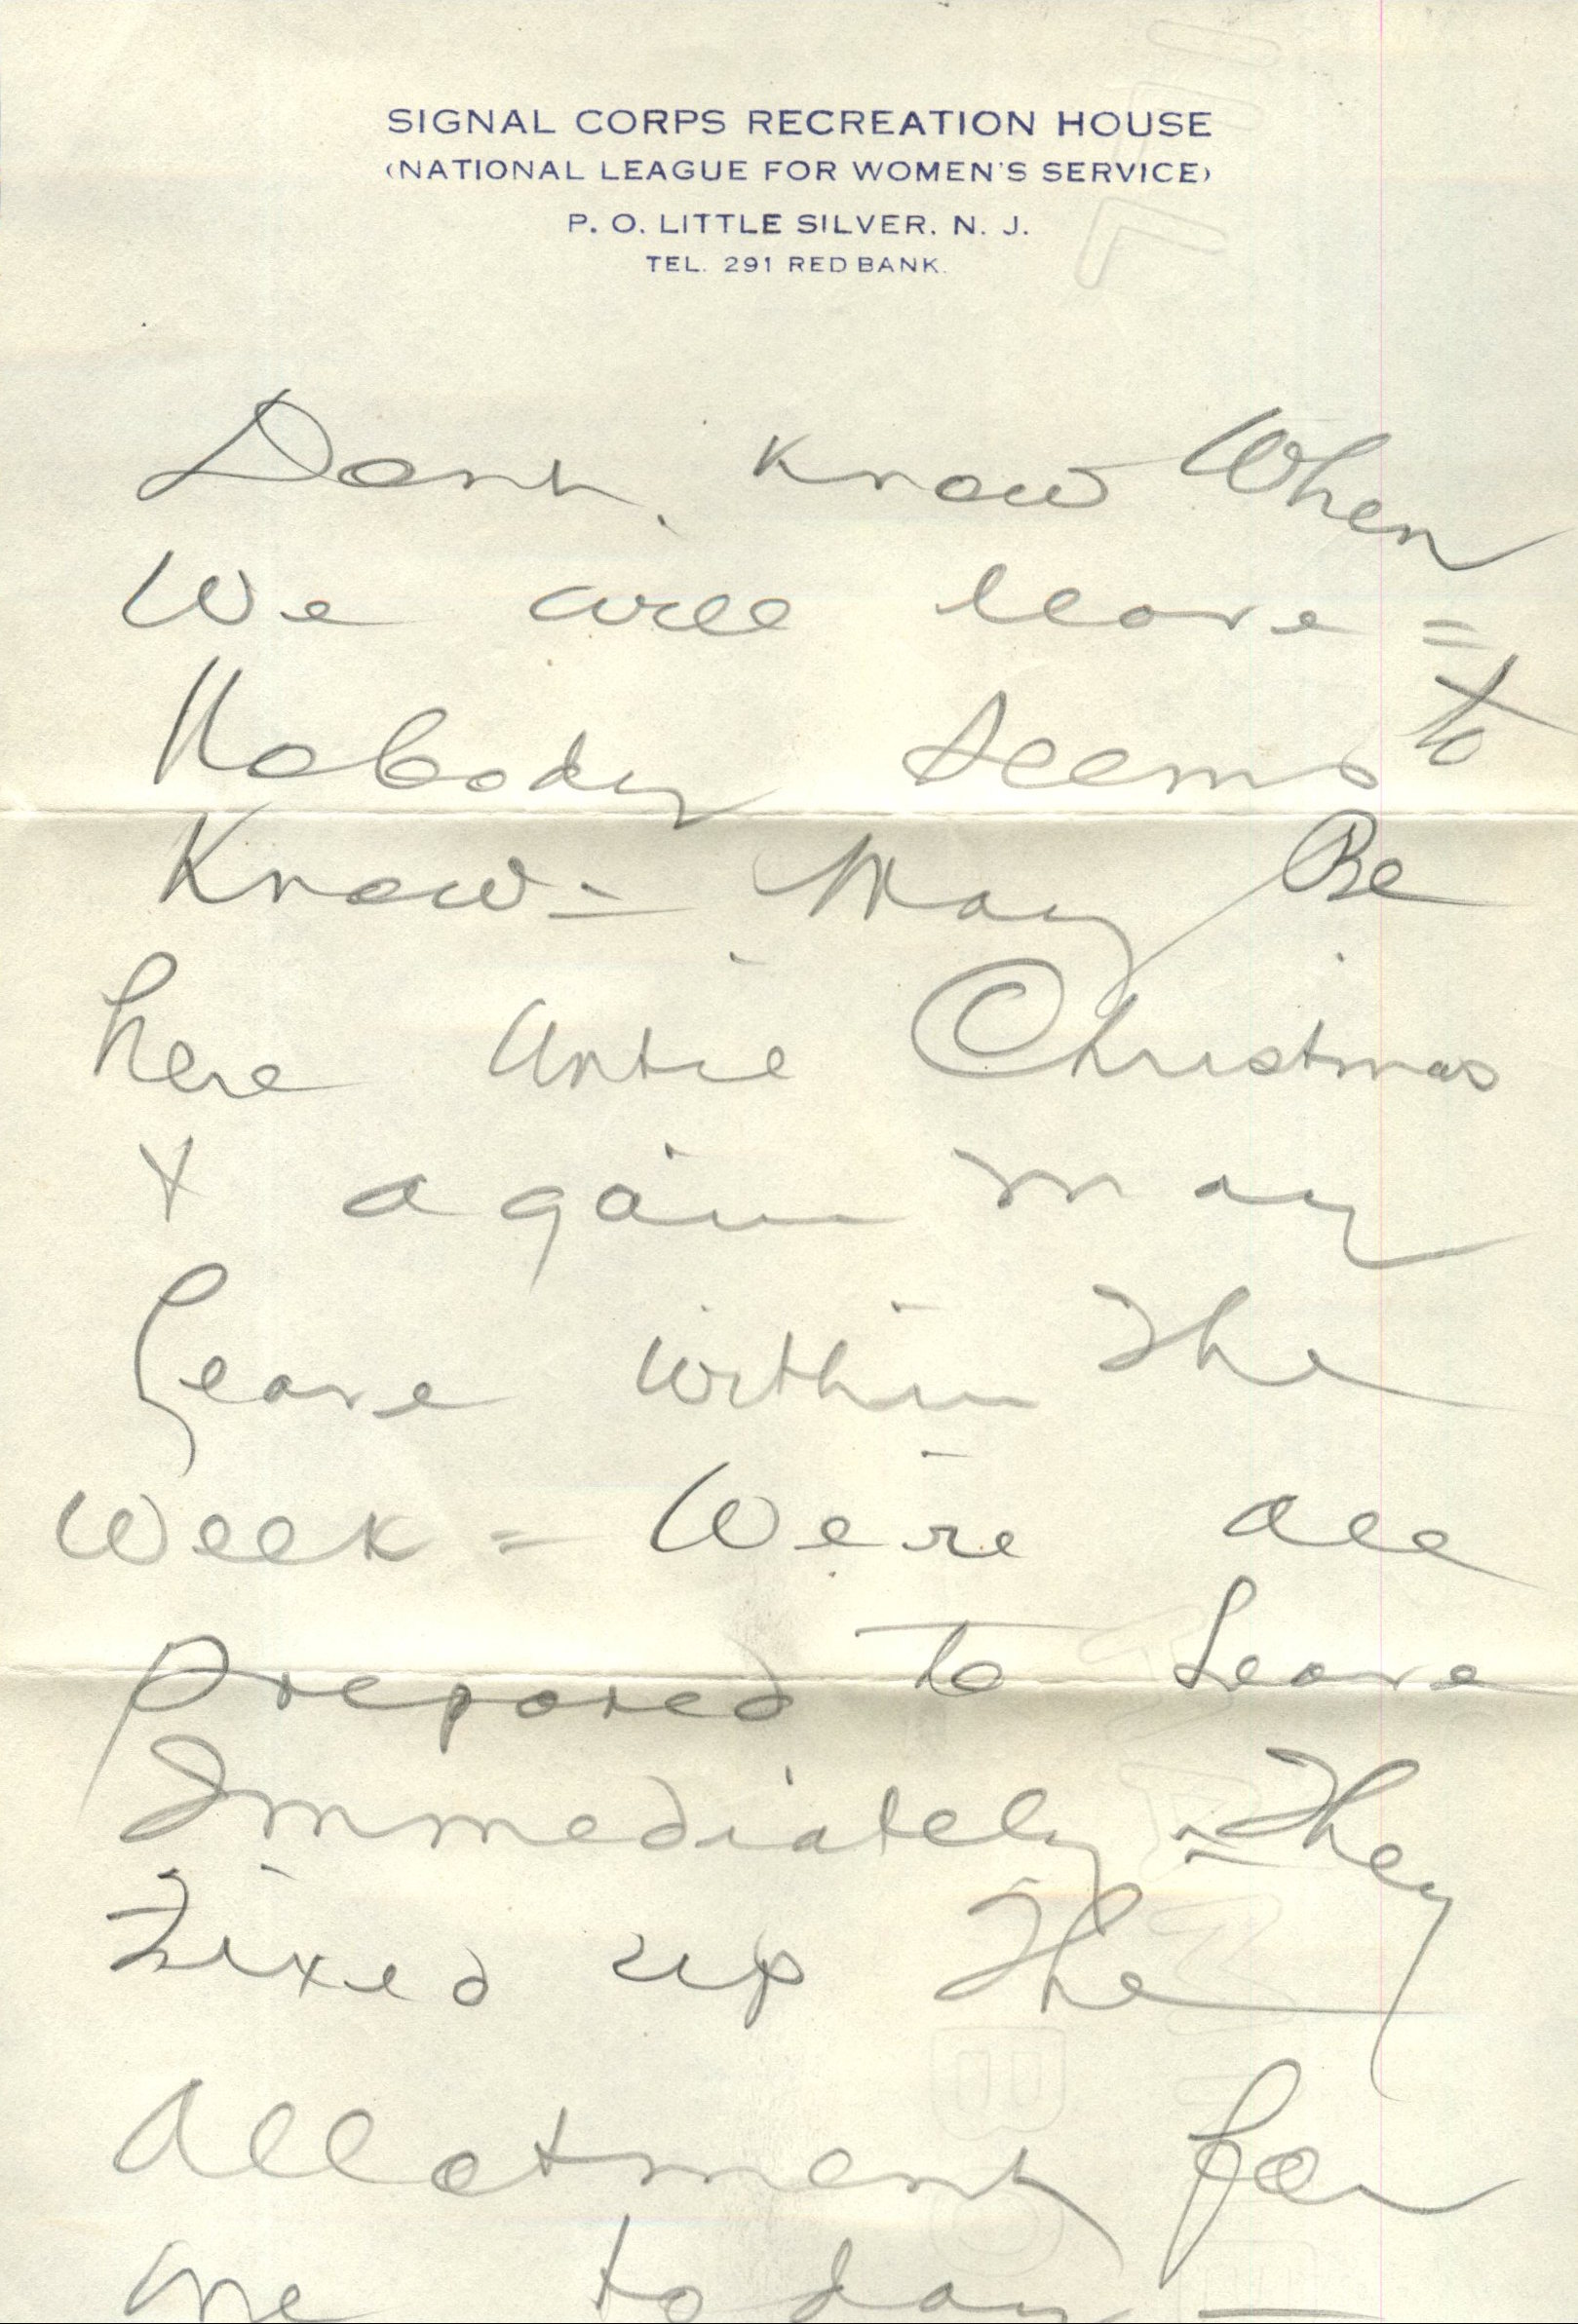 SIGNAL CORPS RECREATION HOUSE
(NATIONAL LEAGUE FOR WOMEN'S SERVICE)
P. O. LITTLE SILVER, N. J.
TEL. 291 RED BANK.
Dont know When
We will leave =
Nobody seems to
Know = May Be
here until Christmas
& again may
Leave within The
Week = We're all
prepared to Leave
Immediately = They
Fixed up The
Allotment for
me today =